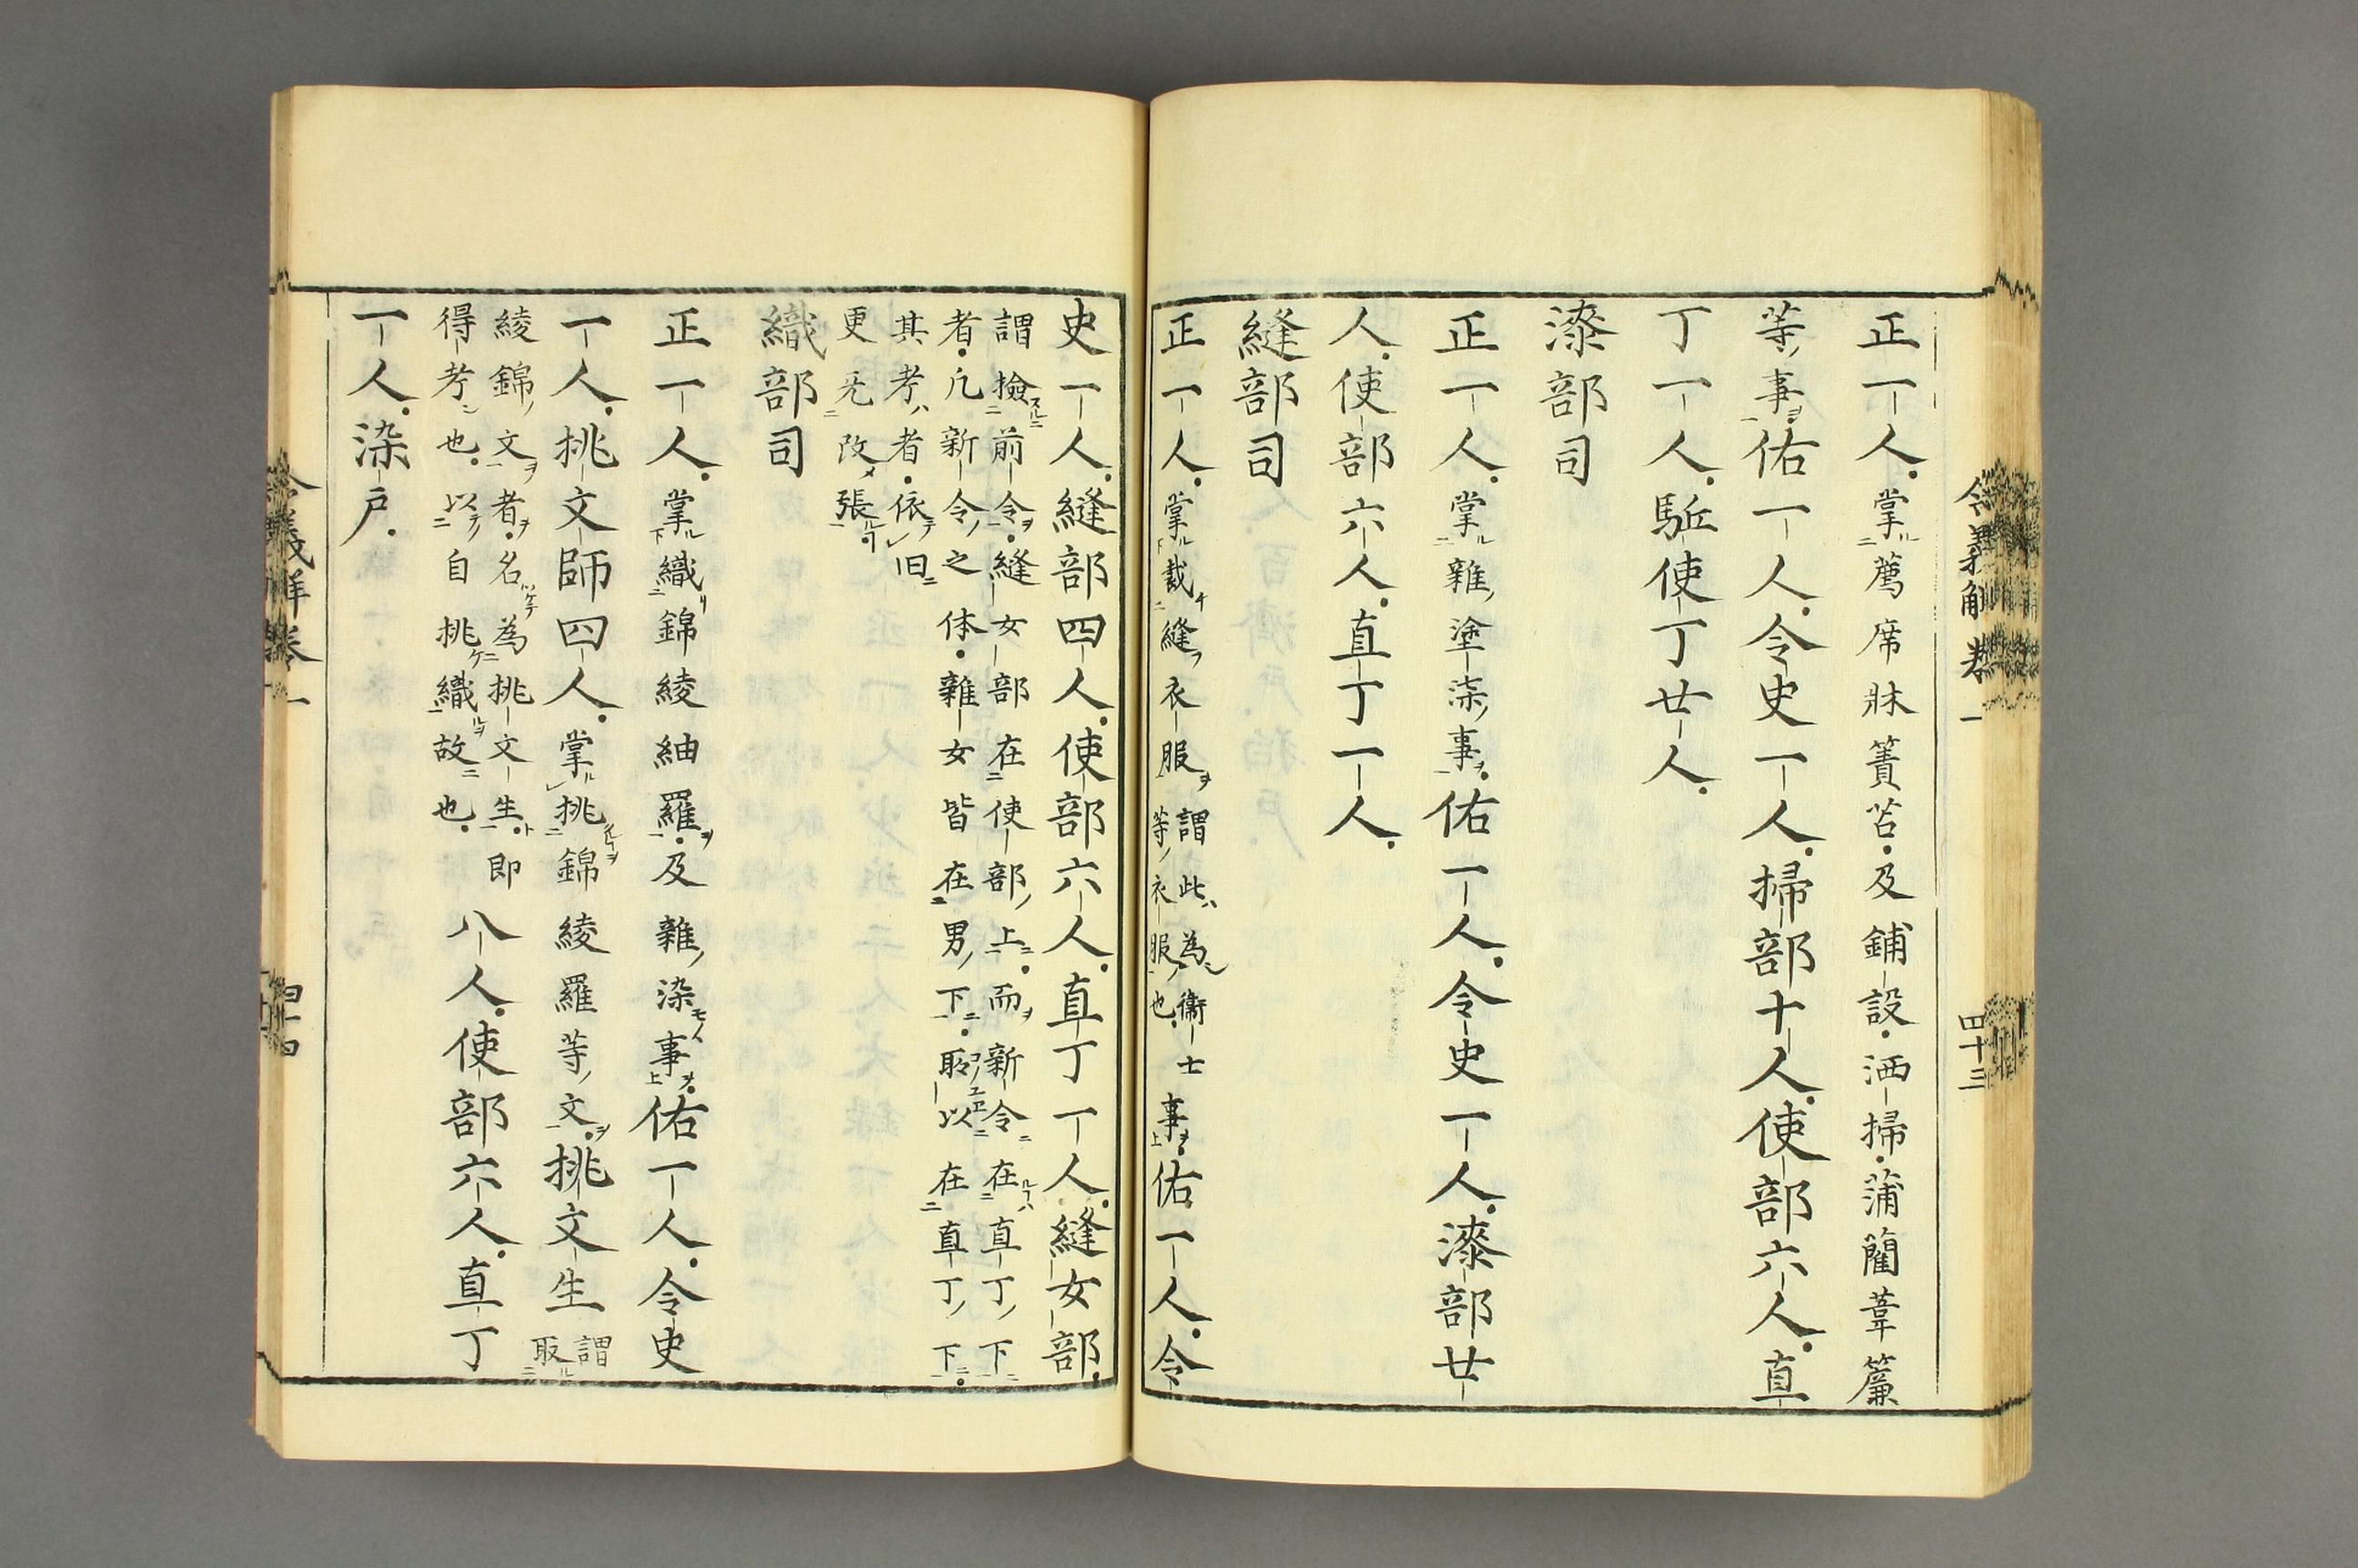 令義解卷一 四十三
正一人掌薦席牀簀苫及鋪設洒掃蒲藺葦簾
等事佑一人令史一人掃部十人使部六人直
丁一人駈使丁廿人
漆部司
正一人掌雜塗漆事佑一人令史一人漆部廿
人使部六人直丁一人
縫部司
正一人掌裁縫衣服謂此為衞士
等衣服也事佑一人令
史一人縫部四人使部六人直丁一人縫女部
謂撿前令縫女部在使部上而新令在直丁下
者凡新令之体雜女皆在男下所以在直丁下
其考者依旧
更无改張
織部司
正一人掌織錦綾紬羅及雜染事佑一人令史
一人挑文師四人掌挑錦綾羅等文挑文生謂
取
綾錦文者名為挑文生即
得考也以自挑織故也八人使部六人直丁
一人染戸
令義解卷一 四十四